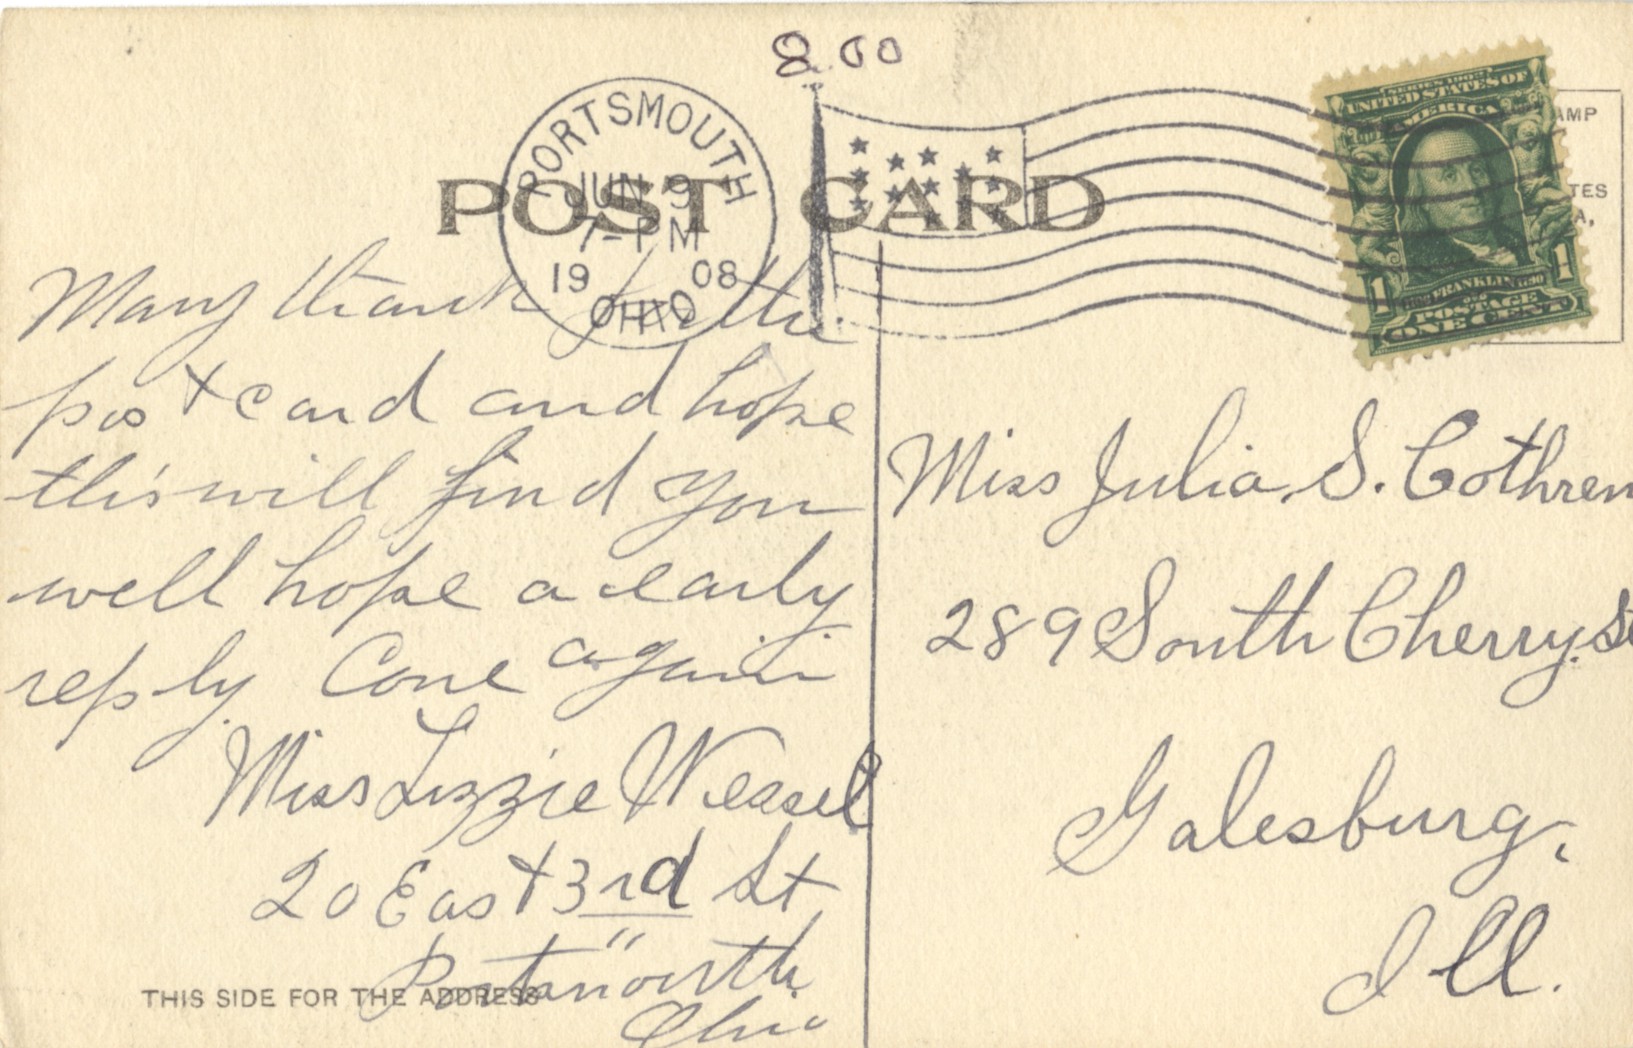 8.00
PORTSMOUTH
JUN 9
7-1 PM
19 08
OHIO
POST CARD
SERIES 1902
UNITED STATES OF
AMERICA
FRANKLIN
POSTAGE
1 1
ONE CENT
AMP
TES
A,
Many thank for the
post card and hope
this will find you
well hope a early
reply Come again
Miss Lizzie Weasel
20 East 3rd St
Portsmouth
Ohio
THIS SIDE FOR THE ADDRESS
Miss Julia. S. Cothren
289 South Cherry. St
Galesburg,
Ill.